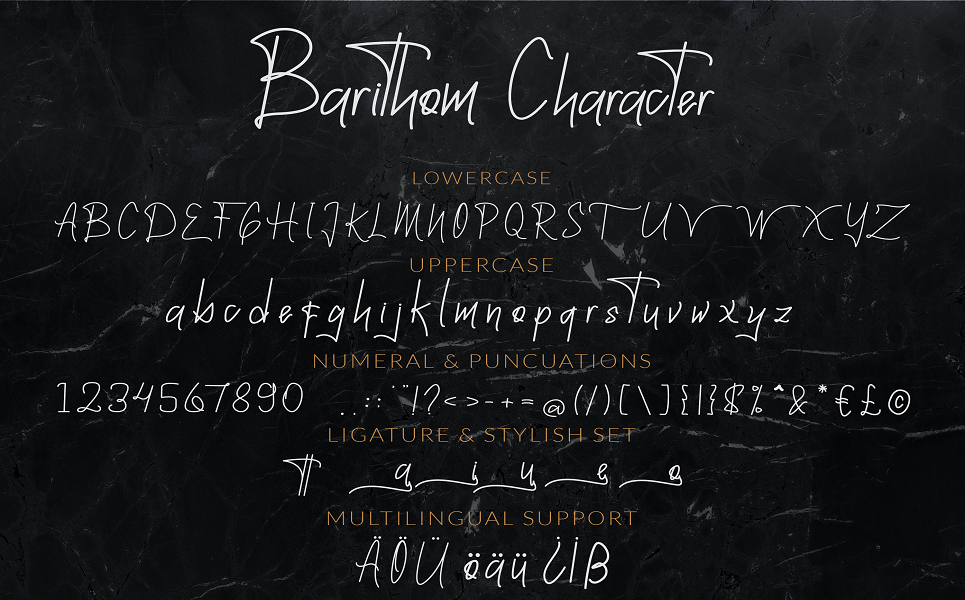 Barithom Character
LOWERCASE
ABCDEFGHIJKLMNOPQRSTUVWXYZ
UPPERCASE
abcdefghijklmnopqrstuvwxyz
NUMERAL & PUNCUATIONS
1234567890 ..:: ¨!?<>-+=@(/)[\]{|}$%^&*€£©
LIGATURE & STYLISH SET
TT a i u e o
MULTILINGUAL SUPPORT
ÄÖÜ öäü ¿¡ß